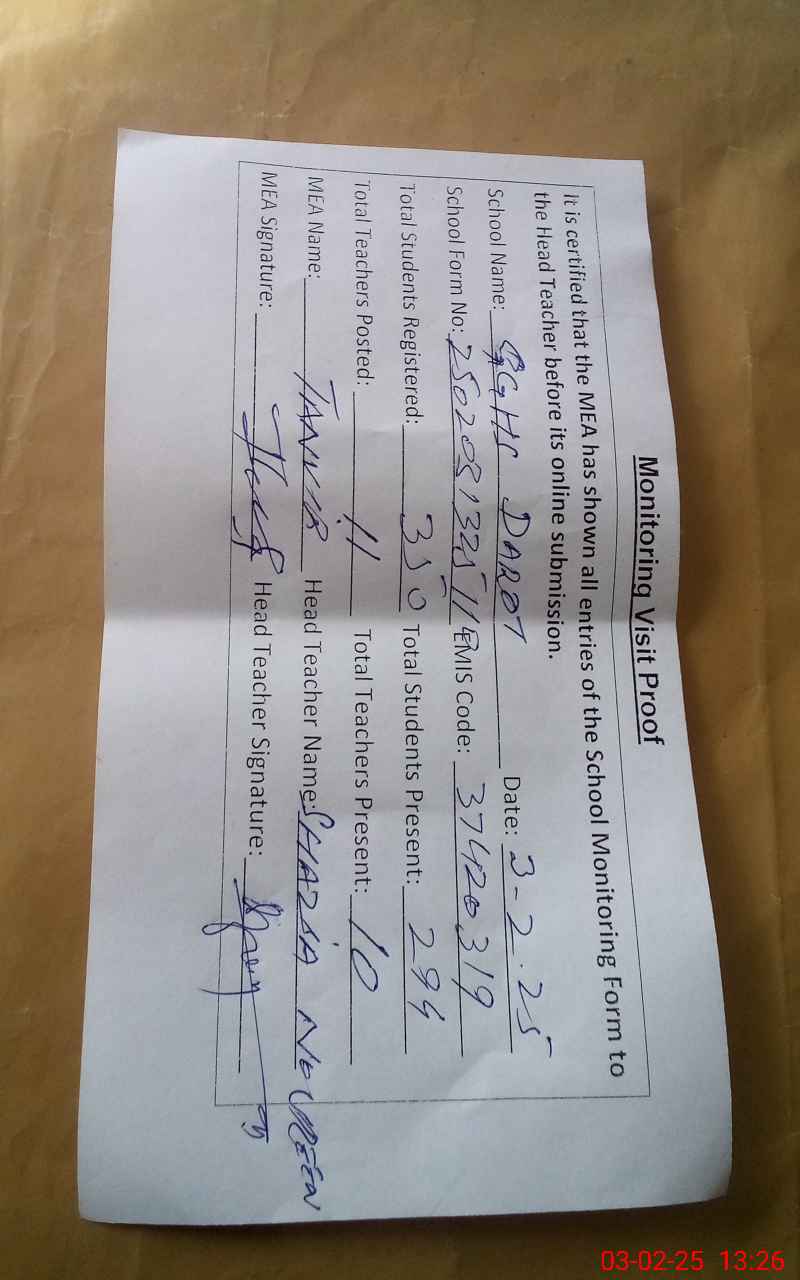 Monitoring Visit Proof
It is certified that the MEA has shown all entries of the School Monitoring Form to
the Head Teacher before its online submission.
School Name: GGHS DAROT Date: 3-2-25
School Form No: EMIS Code: 37420319
Total Students Registered: 350 Total Students Present: 294
Total Teachers Posted: 11 Total Teachers Present: 10
MEA Name: TANVIR Head Teacher Name: SHAZIA NOUREEN
MEA Signature: Head Teacher Signature:
03-02-25 13:26